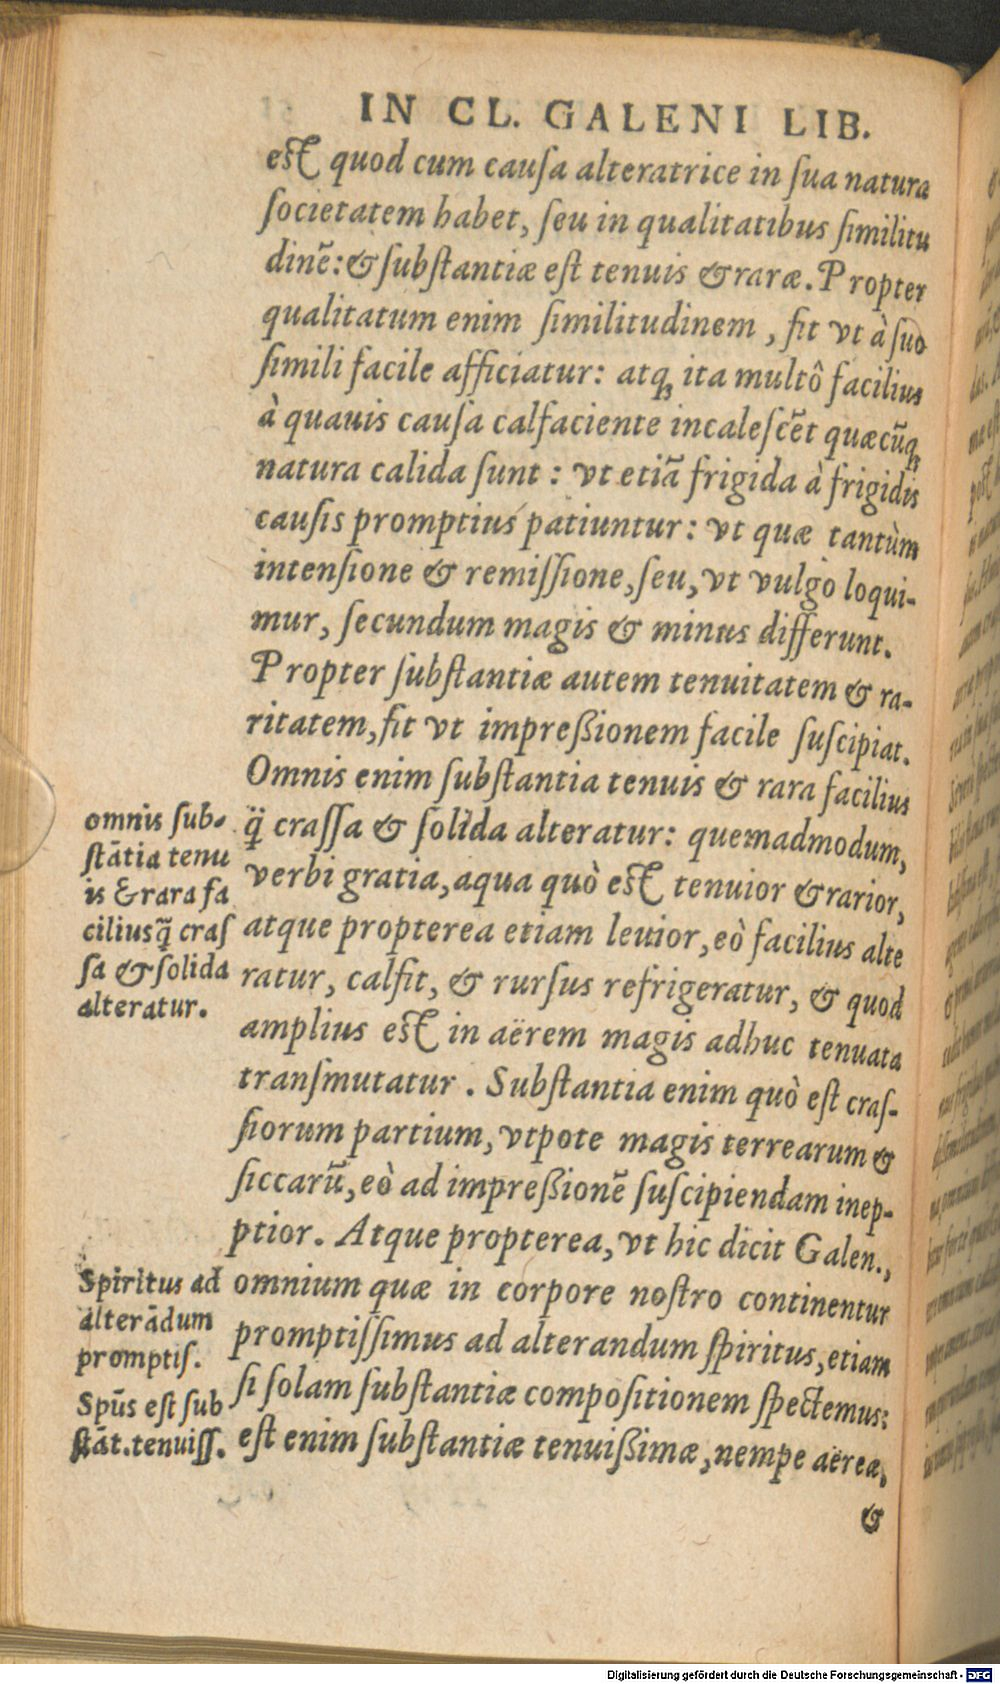 IN CL. GALENI LIB.
est quod cum cauſa alteratrice in ſua natura
ſocietatem habet, ſeu in qualitatibus ſimilitu
dinē: & ſubſtantiæ eſt tenuis & raræ. Propter
qualitatum enim ſimilitudinem, fit vt à ſuo
ſimili facile afficiatur: atq; ita multô facilius
à quauis cauſa calfaciente incaleſcēt quæcūq;
natura calida ſunt: vt etiā frigida à frigidis
cauſis promptius patiuntur: vt quæ tantùm
intenſione & remiſſione, ſeu, vt vulgo loqui-
mur, ſecundum magis & minus differunt.
Propter ſubſtantiæ autem tenuitatem & ra-
ritatem, fit vt impreßionem facile ſuſcipiat.
Omnis enim ſubſtantia tenuis & rara facilius
q̈̃ craſſa & ſolida alteratur: quemadmodum,
verbi gratia, aqua quò est tenuior & rarior,
atque propterea etiam leuior, eò facilius alte
ratur, calfit, & rurſus refrigeratur, & quod
amplius est in aërem magis adhuc tenuata
tranſmutatur. Subſtantia enim quò eſt craſ-
ſiorum partium, vtpote magis terrearum &
ſiccarū, eò ad impreßionē ſuſcipiendam inep-
ptior. Atque propterea, vt hic dicit Galen.,
omnium quæ in corpore noſtro continentur
promptiſſimus ad alterandum ſpiritus, etiam
ſi ſolam ſubſtantiæ compoſitionem ſpectemus:
eſt enim ſubſtantiæ tenuißimæ, nempe aëreæ,
&
omnis ſub-
ſtātia tenu
is & rara fa
cilius q̈̃ craſ
ſa & ſolida
alteratur.
Spiritus ad
alterādum
promptiſ.
Spūs eſt ſub
ſtāt. tenuiſſ.
Digitalisierung gefördert durch die Deutsche Forschungsgemeinschaft - DFG